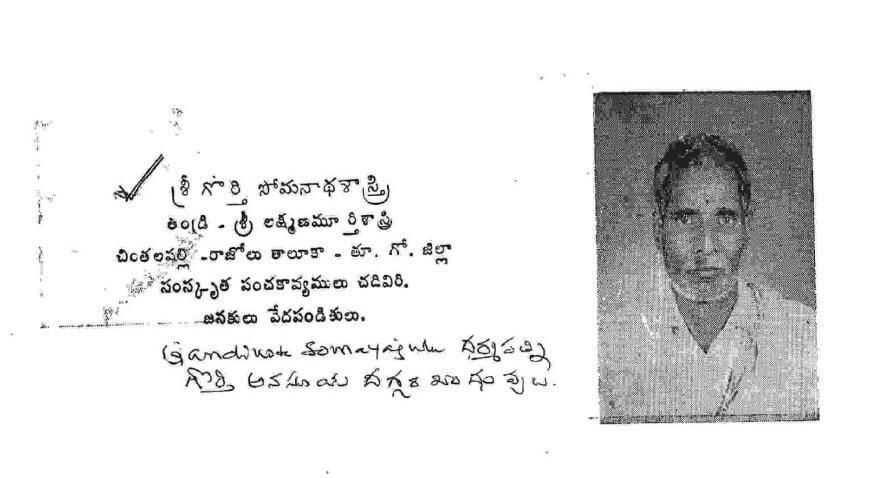 శ్రీ గొర్తి సోమనాథశాస్త్రి
తండ్రి - శ్రీ లక్ష్మణమూర్తిశాస్త్రి
చింతలపల్లి -రాజోలు తాలూకా - తూ. గో. జిల్లా
సంస్కృత పంచకావ్యములు చదివిరి.
జనకులు వేదపండితులు.
Gandikota Somayajulu ధర్మపత్ని
గొర్తి అనసూయ దగ్గర